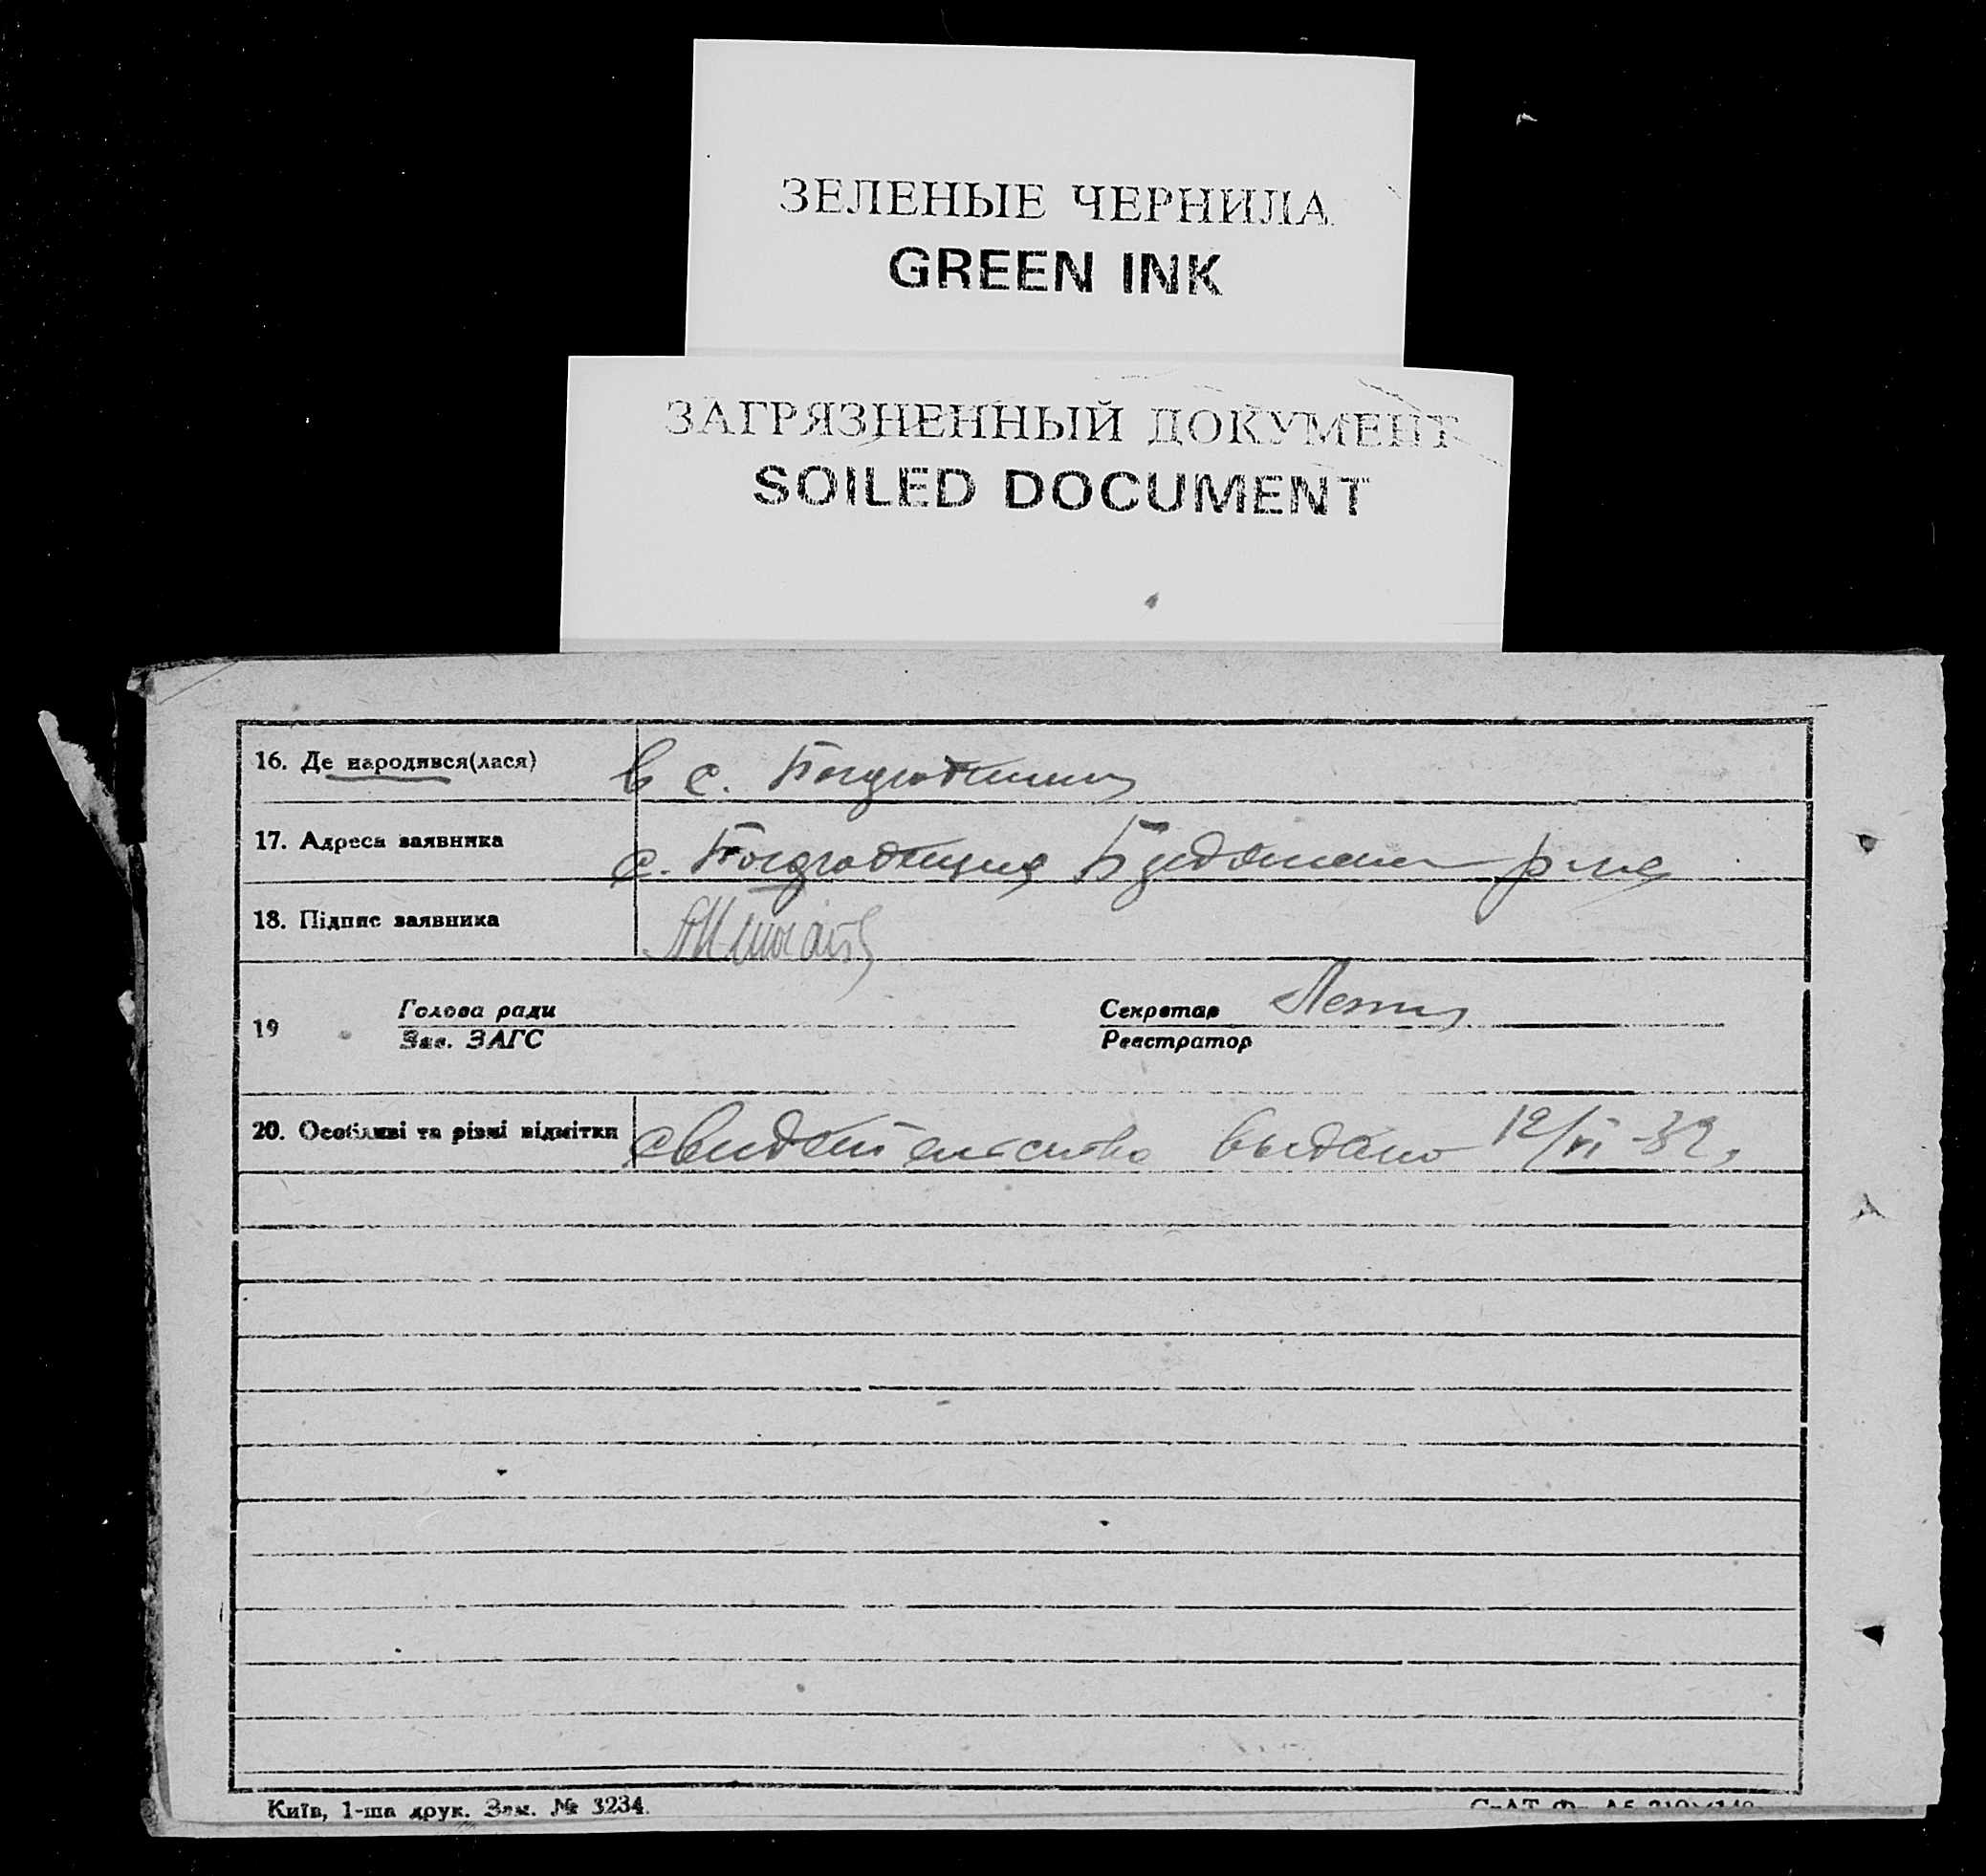 ЗЕЛЕНЫЕ ЧЕРНИЛА
GREEN INK
ЗАГРЯЗНЕННЫЙ ДОКУМЕНТ
SOILED DOCUMENT
16. Де народився(лася) в с.
17. Адреса заявника с.
18. Підпис заявника
19 Голова ради Секретар
Зав. ЗАГС Реєстратор
20. Особливі та різні відмітки свидетельство выдано 12/VI-32
Київ, 1-ша друк. Зам. № 3234.